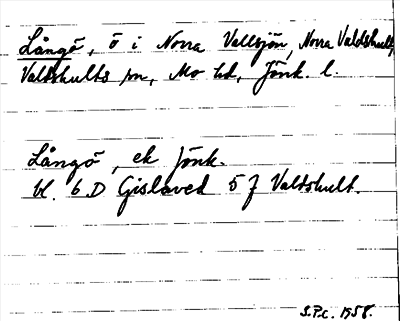 Långö, ö i Norra Vallsjön, Norra Valdshult,
Valdshults sn, Mo hd, Jönk. l.
Långö, ek Jönk.
bl. 6 D Gislaved 5 J Valdshult.
S.P.c. 1958.